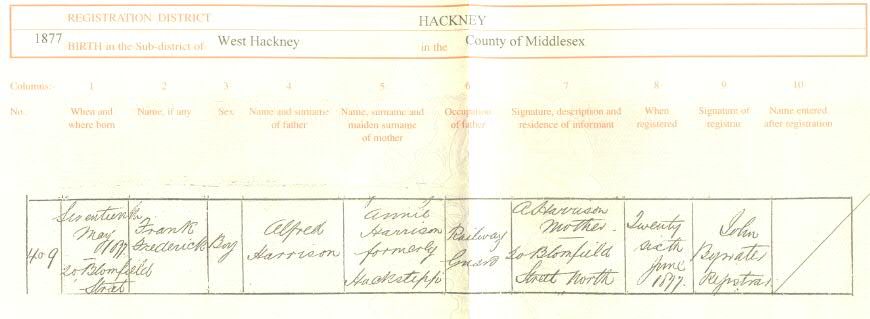 REGISTRATION DISTRICT HACKNEY
1877 BIRTH in the Sub-district of West Hackney in the County of Middlesex
Columns:- 1 2 3 4 5. 6 7 8. 9 10
No. When and where born Name, if any Sex Name and surname of father Name, surname and maiden surname of mother Occupation of father Signature, description and residence of informant When registered Signature of registrar Name entered after registration
409
Seventeenth
May
1877
20 Blomfield
Street
Frank
Frederick
Boy
Alfred
Harrison
Annie
Harrison
formerly
Railway
Guard
A Harrison
Mother
20 Blomfield
Street North
Twenty
sixth
June
1877
John
Bywater
Registrar